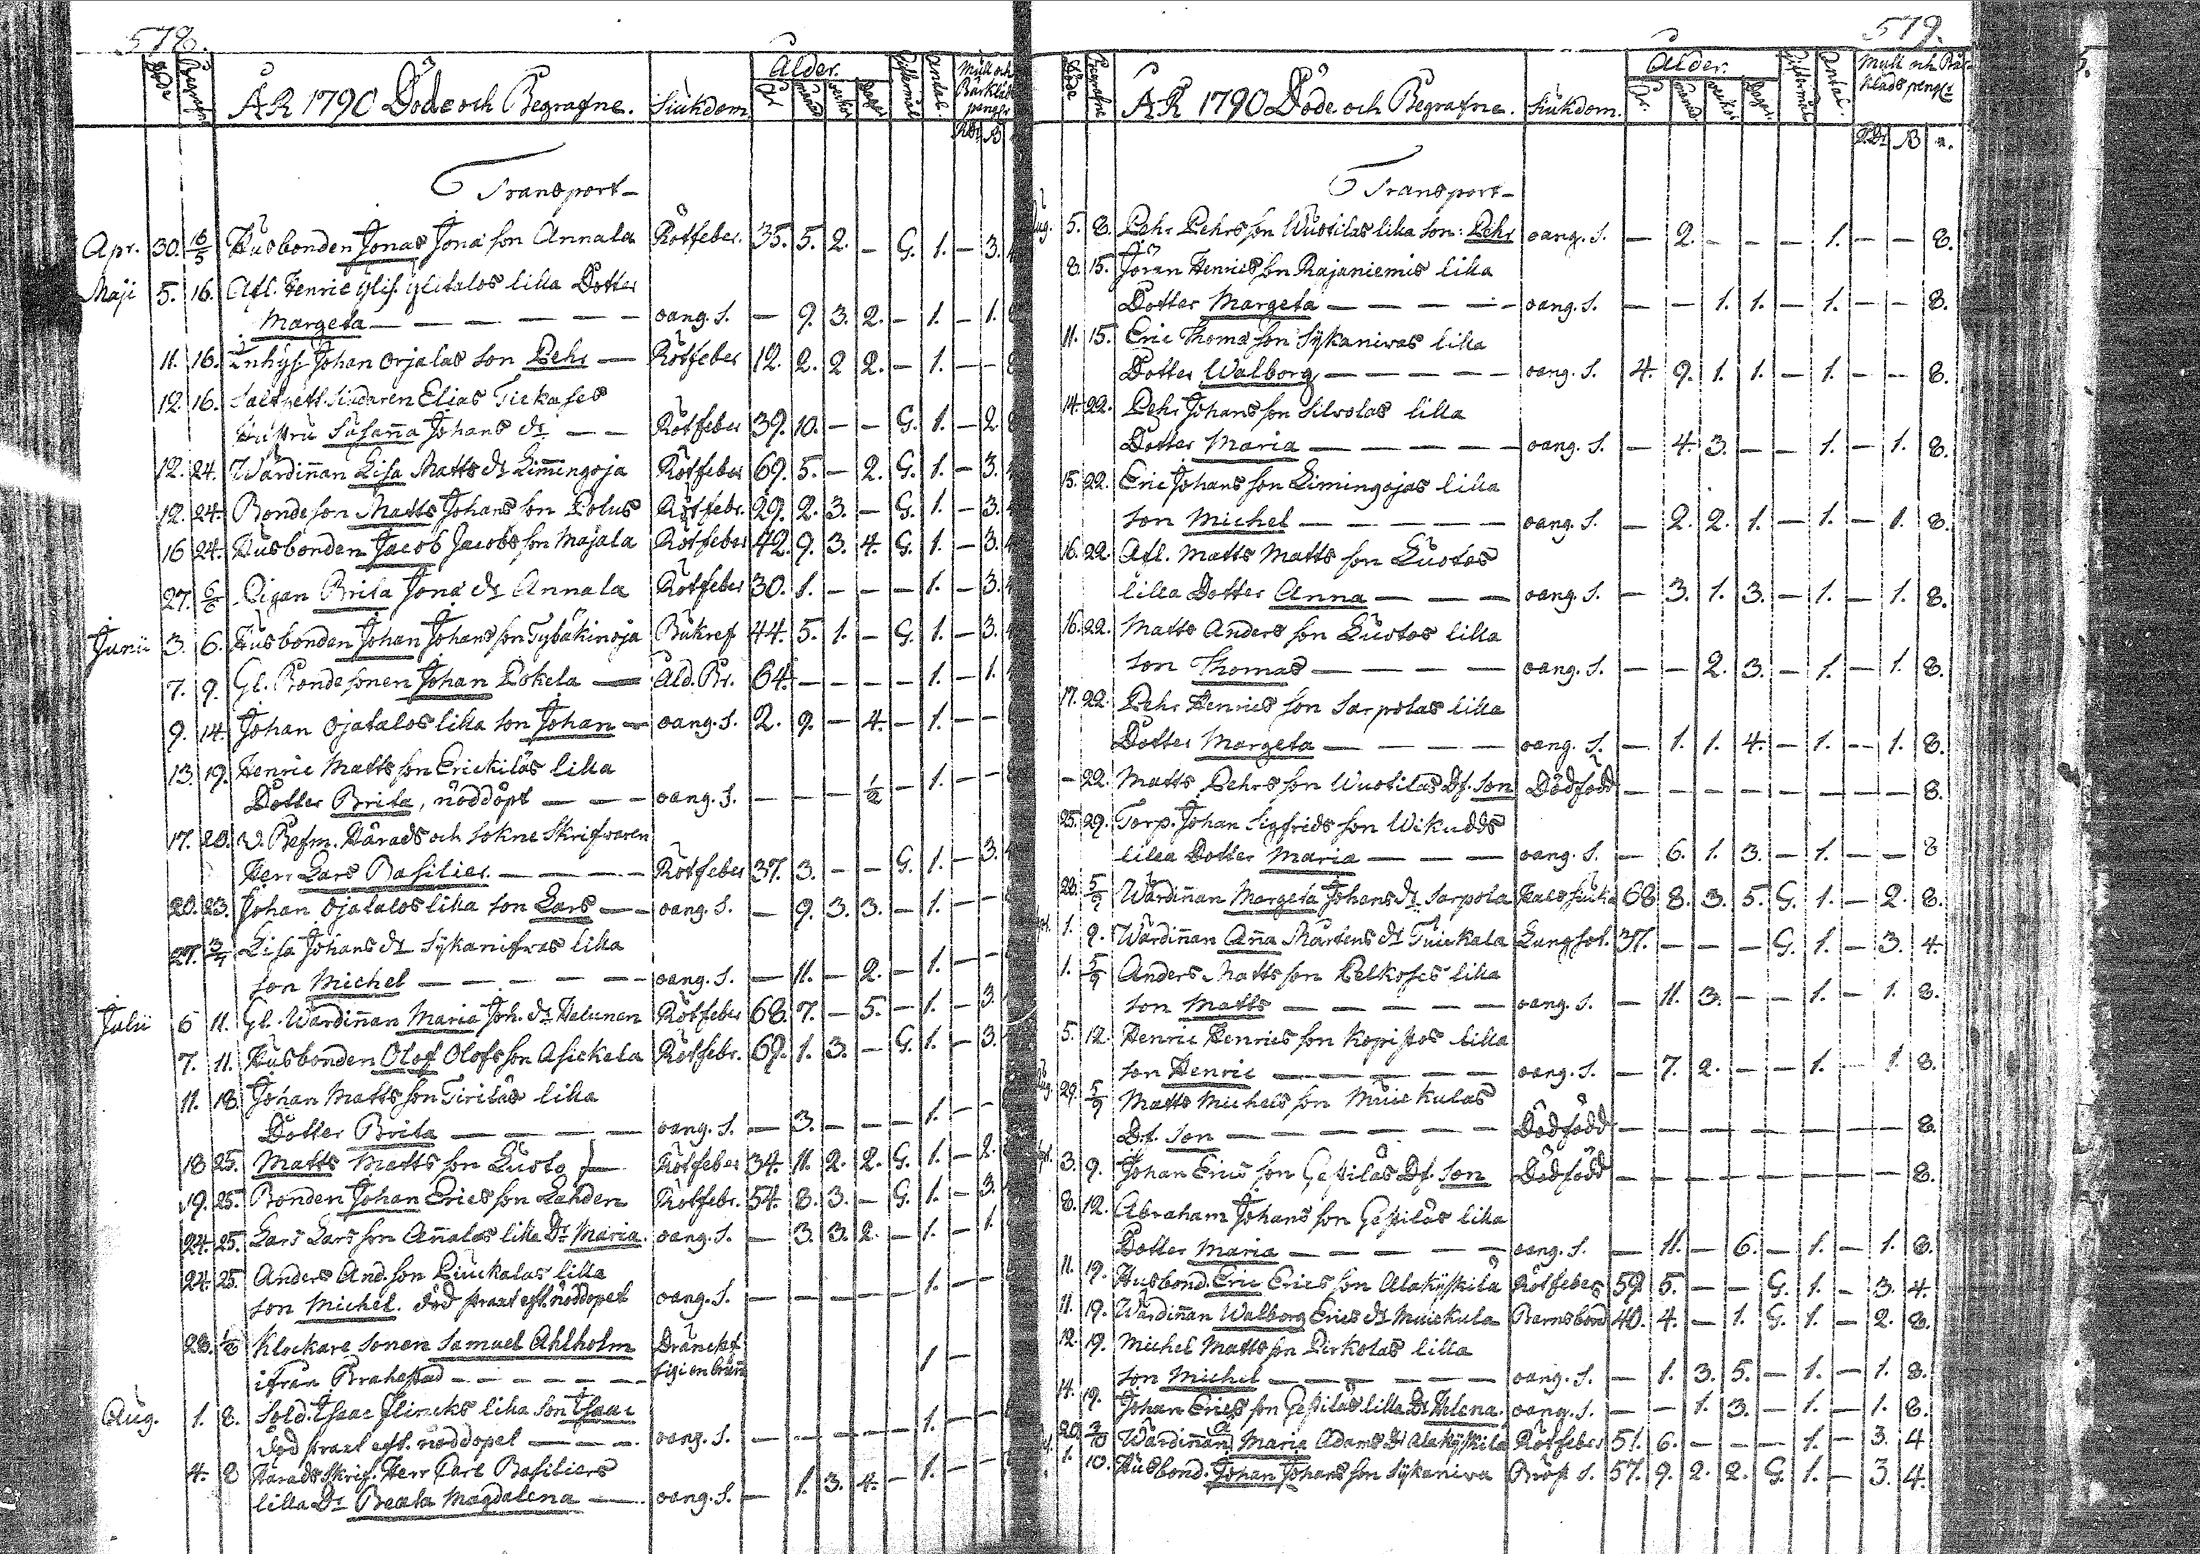 578.
Döde
Begrafne
ÅR 1790 Döde och Begrafne.
Siukdom
Ålder.
År
månad
veckor
dagar
Giftermål
Antal.
Mull och
Bårkläds
penga
RD: ß
Transport —
Apr. 30. 16/5 Husbonden Jonas Jona son Annala Rötfeber. 35. 5. 2. — G. 1. — 3.
Maji 5. 16. Afl. Henric Ylis. Ylitalos lilla Dotter
Margeta — — — — — — oang. S. — 9. 3. 2. — 1. — 1.
11. 16. Inhys. Johan Orjalas son Pehr — Rötfeber 12. 2. 2 2. — 1. — —
12. 16. Saltpett. Siudaren Elias Tickases
Hustru Susanna Johans dr — — Rötfeber 39. 10. — — G. 1. — 2
12. 24. Wärdiñan Lisa Matts dr Limingoja Rötfeber 69. 5. — 2. G. 1. — 3.
12. 24. Bondeson Matts Johans son Polus Rötfebr. 29. 2. 3. — G. 1. — 3.
16 24. Husbonden Jacob Jacobs son Majala Rötfeber 42. 9. 3. 4. G. 1. — 3.
27. 6/6 Pigan Brita Jona dr Annala Rötfeber 30. 1. — — — 1. — 3.
Junii 3. 6. Husbonden Johan Johans son Tybäkinoja Bukref 44. 5. 1. — G. 1. — 3.
7. 9. Gl. Bondesonen Johan Pokela — Åld. Br. 64. — — — — 1. — 1.
9. 14. Johan Ojatalos lilla son Johan — oang. S. 2. 9. — 4. — 1. — —
13. 19. Henric Matts son Erickiläs lilla
Dotter Brita, nöddöpt — — — oang. S. — — — 1/2 — 1. — —
17. 23. V. Befm. Härads och Sokne Skrifwaren
Herr Lars Basilier. — — — — Rötfeber 37. 3. — — G. 1. — 3.
20. 23. Johan Ojatalos lilla son Lars — — oang. S. — 9. 3. 3. — 1. — —
27. 3/7 Lisa Johans dr Sykanifwas lilla
son Michel — — — — — oang. S. — 11. — 2. — 1. — —
Julii 6 11. Gl. Wärdiñan Maria Joh. dr Halunen Rötfeber 68. 7. — 5. — 1. — 3.
7. 11. Husbonden Olof Olofs son Asickala Rötfebr. 69. 1. 3. — G. 1. — 3.
11. 18. Johan Matts son Tiriläs lilla
Dotter Brita — — — — oang. S. — 3. — — — 1. — —
18 25. Matts Matts son Luoto — Rötfeber 34. 11. 2. 2. G. 1. — 2.
19. 25. Bonden Johan Erics son Lehden Rötfebr. 54. 8. 3. — G. 1. — 3.
24. 25. Lars Lars son Añalas lilla Dr Maria. oang. S. — 3. 3. 2. — 1. — 1.
24. 25. Anders And. son Piuckalas lilla
son Michel. död straxt eft. nöddopet oang. S. — — — — — 1. — —
28. 1/8 Klockare sonen Samuel Ahlholm Dränckt
ifrån Brahestad — — — — — — sig i en brunn 1 —
Aug. 1. 8. Sold. Isaac Flincks lilla son Isaac
död straxt eft. nöddopet — — — oang. S. — — — — — 1. — —
4. 8 Häradsskrif. Herr Carl Basiliers
lilla Dr Beata Magdalena — oang. S. — 1. 3. 4. — 1. — —
579.
Döde
Begrafne
ÅR 1790 Döde och Begrafne.
Siukdom.
Ålder.
År.
månad
veckor
dagar
Giftermål
Antal.
Mull och Bår
kläds peng.
RD: ß
Transport —
Aug. 5. 8. Pehr Pehrs son Wuotilas lilla son: Pehr oang. S. — 2. — — — 1. — — 8.
8. 15. Jöran Henrics son Rajaniemis lilla
Dotter Margeta — — — — — oang. S. — — 1. 1. — 1. — — 8.
11. 15. Eric Thoma son Sykaniwas lilla
Dotter Walborg — — — — — oang. S. 4. 9. 1. 1. — 1. — — 8.
14. 22. Pehr Johans son Silvolas lilla
Dotter Maria — — — — — oang. S. — 4. 3. — — 1. — 1. 8.
15. 22. Eric Johans son Limingojas lilla
son Michel — — — — — oang. S. — 2. 2. 1. — 1. — 1. 8.
16. 22. Afl. Matts Matts son Luotos
lilla Dotter Anna — — — oang. S. — 3. 1. 3. — 1. — 1. 8.
16. 22. Matts Anders son Luotos lilla
son Thomas — — — — oang. S. — — 2. 3. — 1. — 1. 8.
17. 22. Pehr Henrics son Sarpolas lilla
Dotter Margeta — — — — oang. S. — 1. 1. 4. — 1. — 1. 8.
— 22. Matts Pehrs son Wuotilas Df. Son Dödfödd — — — — — — — — 8.
25. 29. Torp. Johan Sigfrids son Wikudds
lilla Dotter Maria — — — oang. S. — 6. 1. 3. — 1. — — 8
28. 5/9 Wärdiñan Margeta Johans dr Sarpola Halssiuka 68 8. 3. 5. G. 1. — 2. 8.
1. 9. Wärdiñan Aña Mårtens dr Tuickala Lungsot. 37. — — — G. 1. — 3. 4.
1. 5/9 Anders Matts son Pelkoses lilla
son Matts — — — — — oang. S. — 11. 3. — — 1. — 1. 8.
5. 12. Henric Henrics son Kopistos lilla
son Henric — — — — — oang. S. — 7. 2. — — 1. — 1. 8.
Aug. 29. 5/9 Matts Michels son Muickulas
Df. son — — — — — — Dödfödd — — — — — — — — 8.
3. 9. Johan Erics son Gestiläs Df. Son Dödfödd — — — — — — — — 8.
8. 12. Abraham Johans son Gestiläs lilla
Dotter Maria — — — — — oang. S. — 11. — 6. — 1. — 1. 8.
11. 19. Husbond. Eric Erics son Alakyskilä Rötfeber 59. 5. — — G. 1. — 3. 4.
11. 19. Wärdiñan Walborg Erics dr Muickula Barnsbörd 40. 4. — 1. G. 1. — 2. 8.
12. 19. Michel Matts son Pirkolas lilla
son Michel — — — — — oang. S. — 1. 3. 5. — 1. — 1. 8.
14. 19. Johan Erics son Gestiläs lilla Dr Helena. oang. S. — — 1. 3. — 1. — 1. 8.
20. 3/10 Wärdiñan Maria Adams dr Alakyskilä Rötfeber 51. 6. — — — 1. — 3. 4
1. 10. Husbond. Johan Johans son Sykaniwa Bröst S. 57. 9. 2. 2. G. 1. — 3. 4.